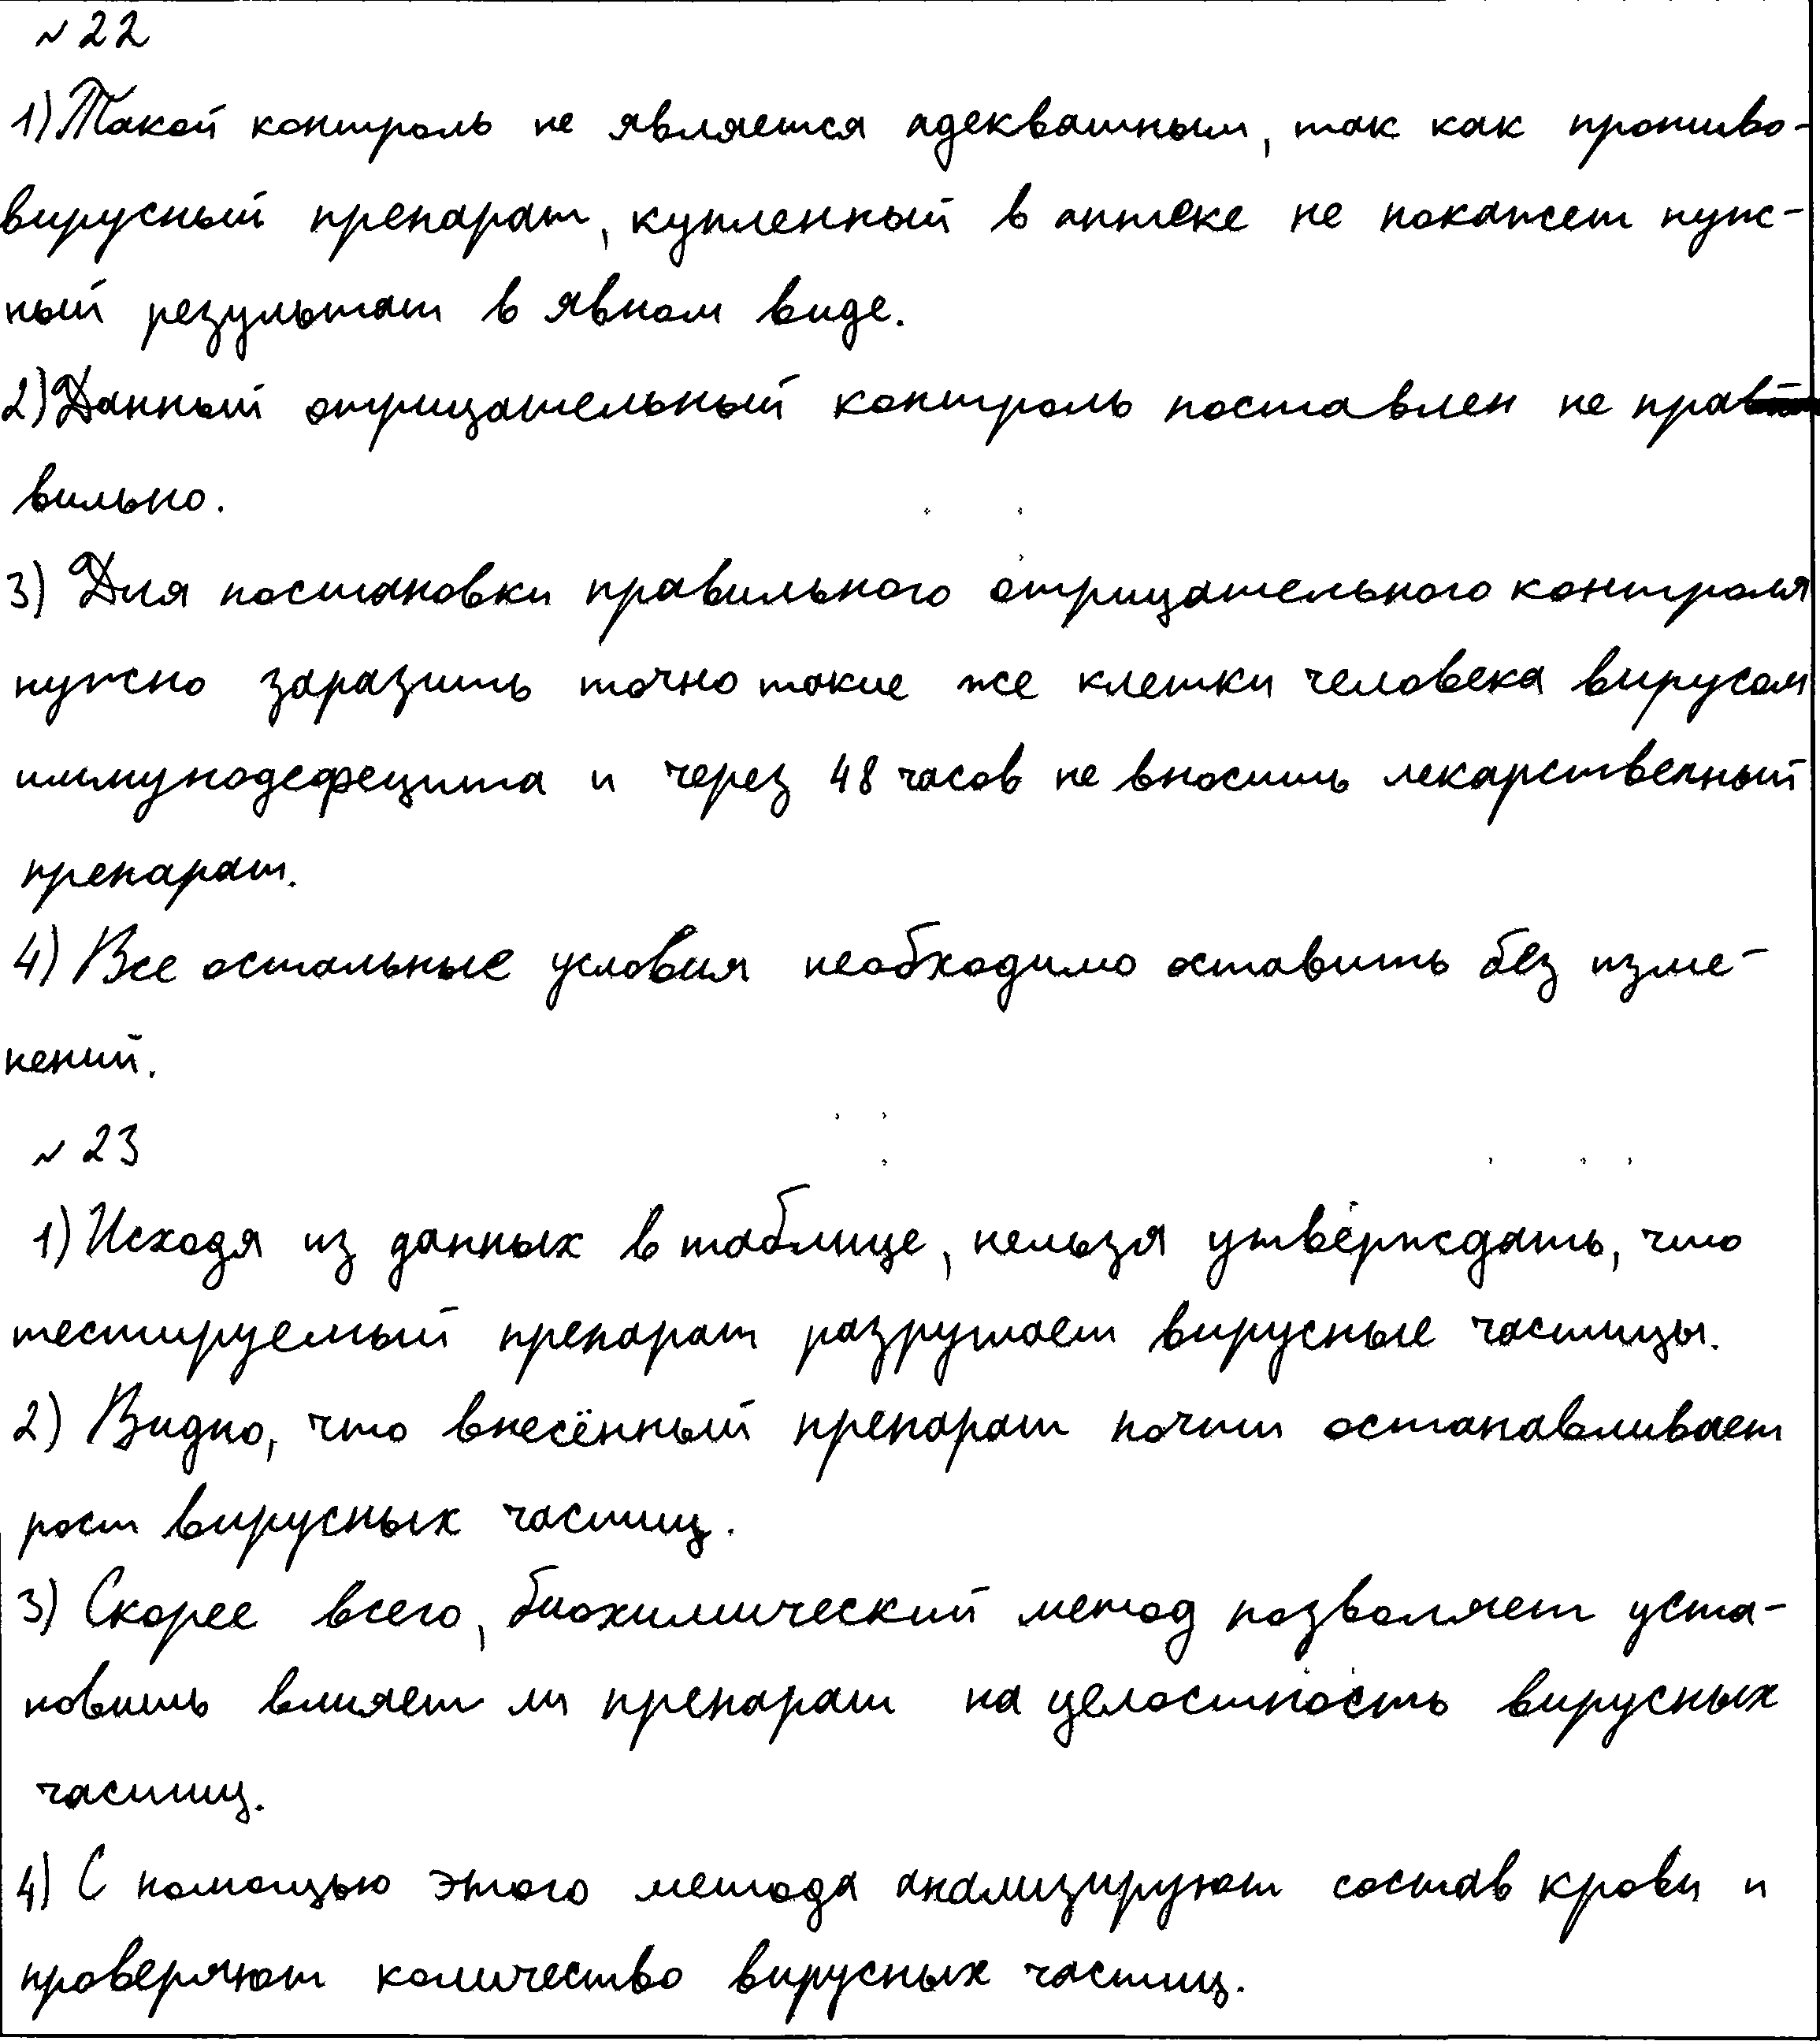 №22
1) Такой контроль не является адекватным, так как противо-
вирусный препарат, купленный в аптеке не покажет нуж-
ный результат в явном виде.
2) Данный отрицательный контроль поставлен не пра
вильно.
3) Для постановки правильного отрицательного контроля
нужно заразить точно такие же клетки человека вирусом
иммунодефецита и через 48 часов не вносить лекарственный
препарат.
4) Все остальные условия необходимо оставить без изме-
нений.
№23
1) Исходя из данных в таблице, нельзя утверждать, что
тестируемый препарат разрушает вирусные частицы.
2) Видно, что внесённый препарат почти останавливает
рост вирусных частиц.
3) Скорее всего, биохимический метод позволяет уста-
новить влияет ли препарат на целостность вирусных
частиц.
4) С помощью этого метода анализируют состав крови и
проверяют количество вирусных частиц.